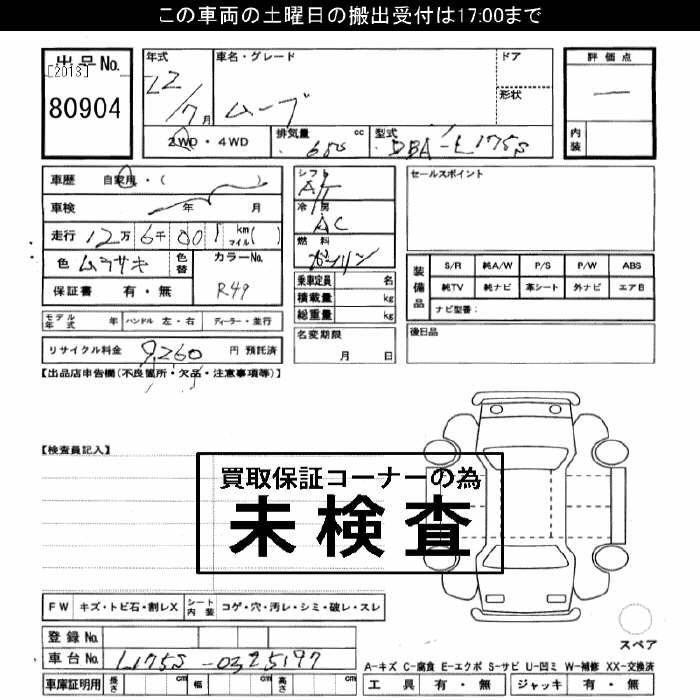 この車両の土曜日の搬出受付は17:00まで
出品No.
[2013]
80904
年式
22/7月
車名・グレード
ムーブ
ドア
形状
2WD・4WD
排気量 cc
650
型式
DBA-L175S
評価点
—
内装
車歴 自家用・( )
車検 年 月
走行 12万6千001km マイル( )
色 ムラサキ
色替
カラーNo.
R49
保証書 有・無
シフト
AT
冷房
AC
燃料
ガソリン
乗車定員 名
積載量 kg
総重量 kg
名変期限
月 日
セールスポイント
装備品
S/R 純A/W P/S P/W ABS
純TV 純ナビ 革シート 外ナビ エアB
ナビ型番:
後日品
モデル年式 年 ハンドル 左・右 ディーラー・並行
リサイクル料金 9,260 円 預託済
【出品店申告欄(不良箇所・欠品・注意事項等)】
【検査員記入】
買取保証コーナーの為
未検査
FW キズ・トビ石・割レX シート内装 コゲ・穴・汚レ・シミ・破レ・スレ
登録No.
車台No. L175S-0325197
車庫証明用 長さ cm 幅 cm 高さ cm
スペア
A-キズ C-腐食 E-エクボ S-サビ U-凹ミ W-補修 XX-交換済
工具 有・無 ジャッキ 有・無